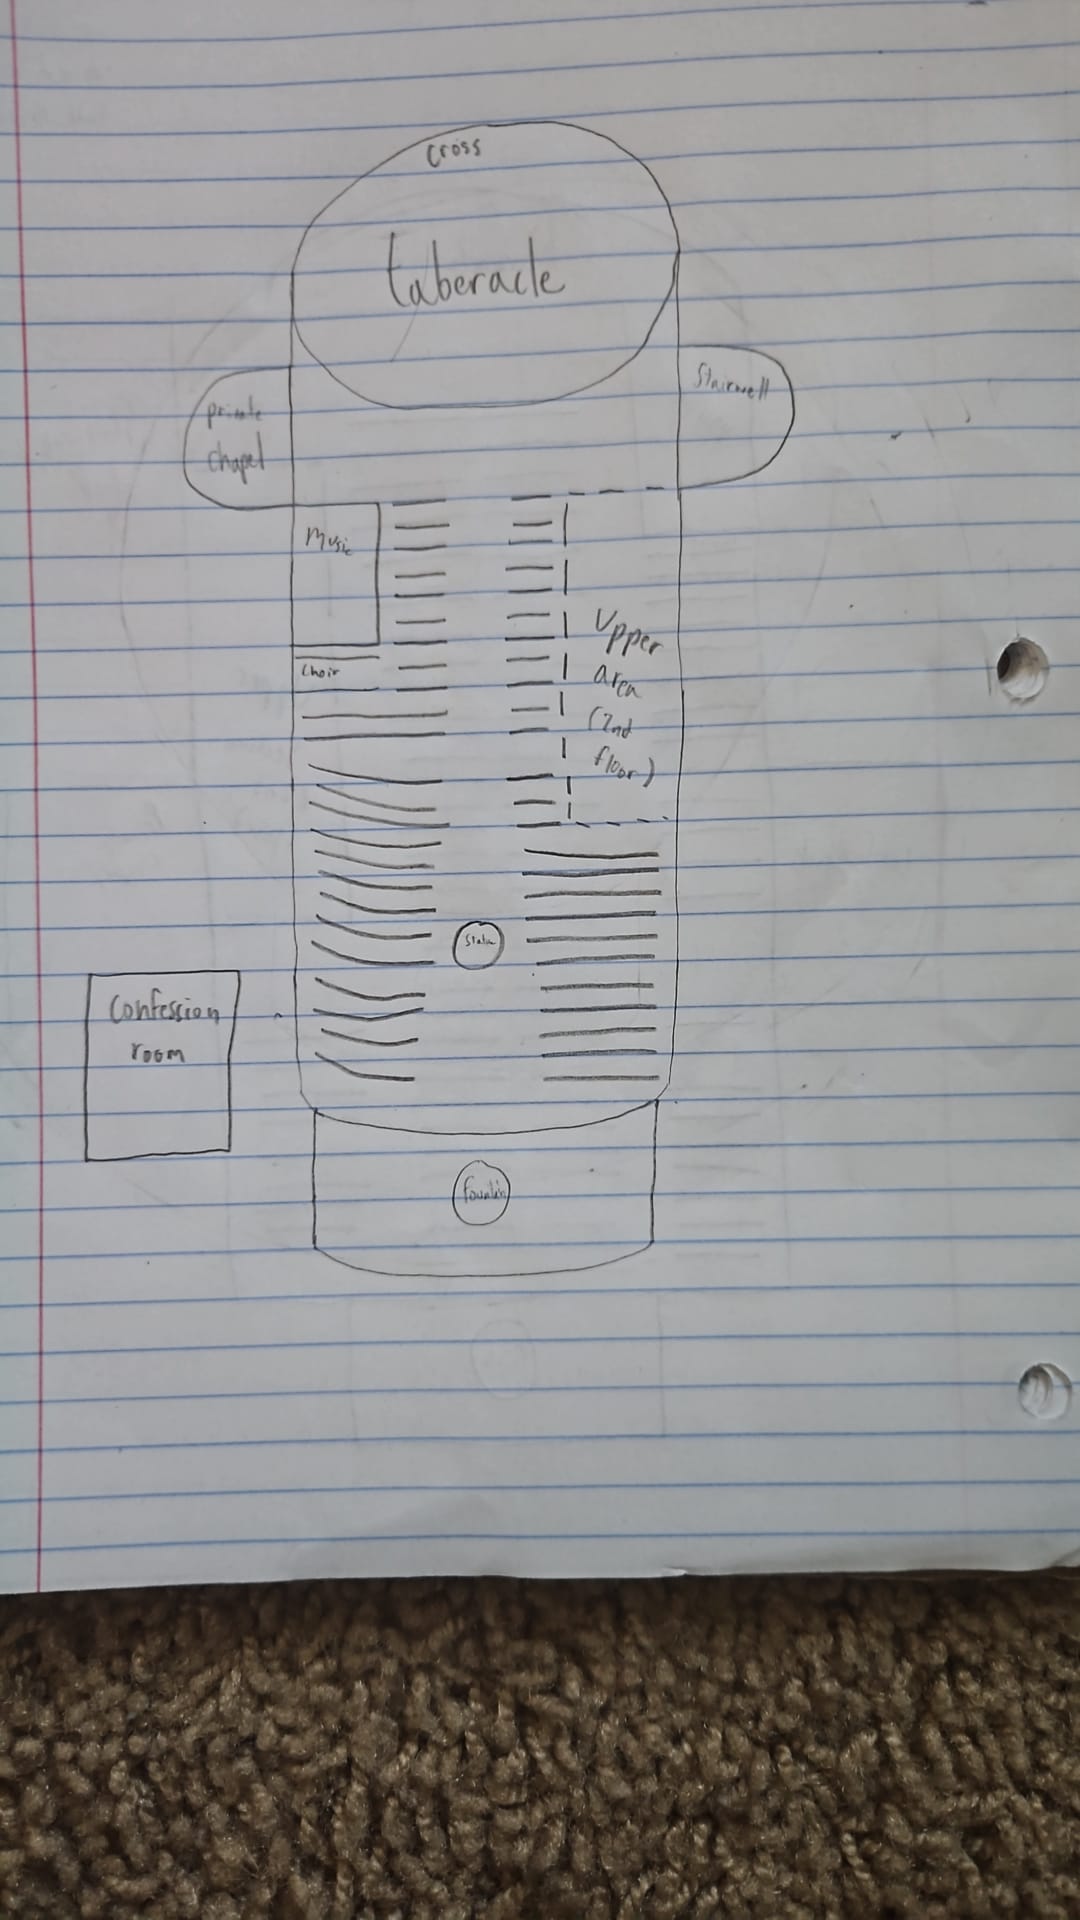 Cross
taberacle
Stairwell
private
chapel
Music
Upper
area
(2nd
floor)
Choir
Statue
Confession
room
Fountain